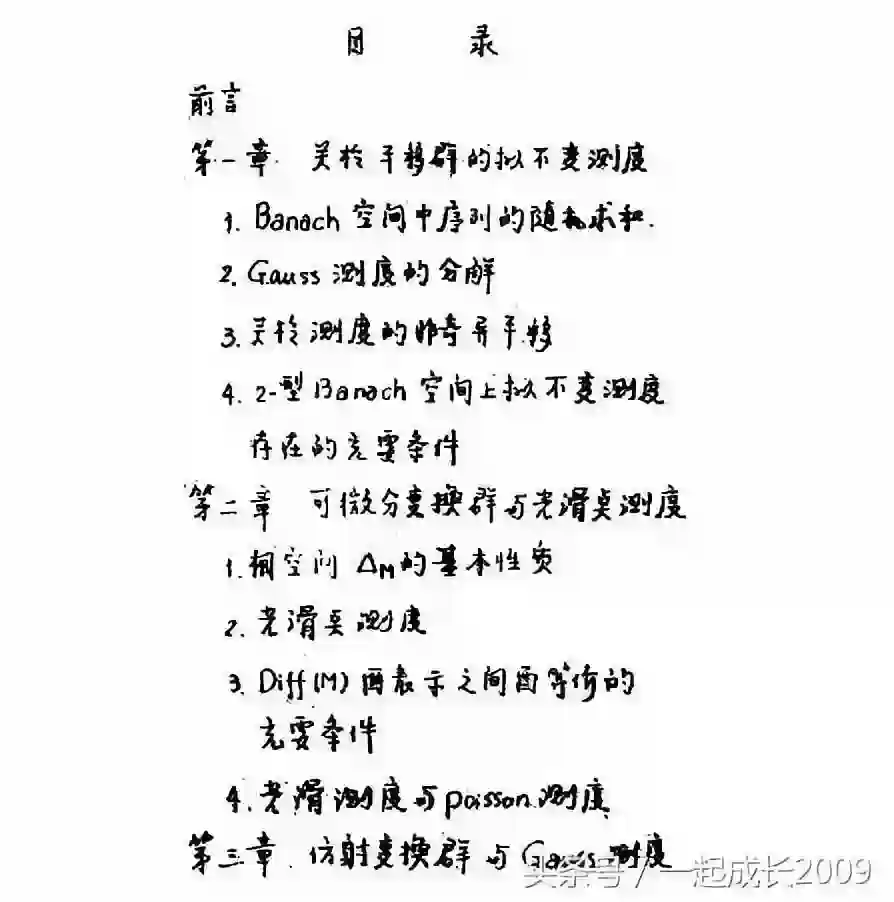 目 录
前言
第一章 关于平移群的拟不变测度
1. Banach 空间中序列的随机求和.
2. Gauss 测度的分解
3. 关于测度的非奇异平移
4. 2-型 Banach 空间上拟不变测度
存在的充要条件
第二章 可微分变换群与光滑型测度
1. 相空间 ΔM的基本性质
2. 光滑型测度
3. Diff(M) 酉表示之间酉等价的
充要条件
4. 光滑测度与poisson测度
第三章 仿射变换群与Gauss测度
头条号 / 一起成长2009